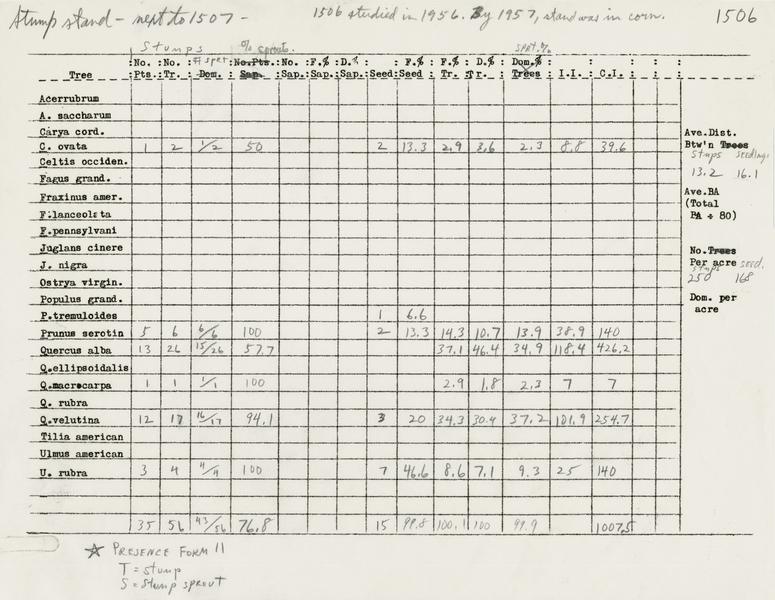 Stump stand - next to 1507 - 1506 studied in 1956. By 1957, stand was in corn. 1506
Stumps % sprouts. SPRT. %
:No. :No. : # SPRT :No.Pts.:No. :F.% :D.% : : F.% : F.% : D.% : Dom.% : : :
Tree :Pts.:Tr. : Dom. : Sap. :Sap.:Sap.:Sap.:Seed:Seed : Tr. : Tr. : Trees : I.I. : C.I. :
Acerrubrum
A. saccharum
Carya cord.
C. ovata 1 2 1/2 50 2 13.3 2.9 3.6 2.3 8.8 39.6
Celtis occiden.
Fagus grand.
Fraxinus amer.
F.lanceolata
F.pennsylvani
Juglans cinere
J. nigra
Ostrya virgin.
Populus grand.
P.tremuloides 1 6.6
Prunus serotin 5 6 6/6 100 2 13.3 14.3 10.7 13.9 38.9 140
Quercus alba 13 26 15/26 57.7 37.1 46.4 34.9 118.4 426.2
Q.ellipsoidalis
Q.macrocarpa 1 1 1/1 100 2.9 1.8 2.3 7 7
Q. rubra
Q.velutina 12 17 16/17 94.1 3 20 34.3 30.4 37.2 101.9 254.7
Tilia american
Ulmus american
U. rubra 3 4 4/4 100 7 46.6 8.6 7.1 9.3 25 140
35 56 43/56 76.8 15 99.8 100.1 100 99.9 1007.5
Ave.Dist.
Btw'n Trees
stumps seedlings
13.2 16.1
Ave.BA
(Total
BA ÷ 80)
No.Trees
Per acre seed.
stumps
250 168
Dom. per
acre
☆ PRESENCE FORM 11
T = stump
S = stump sprout